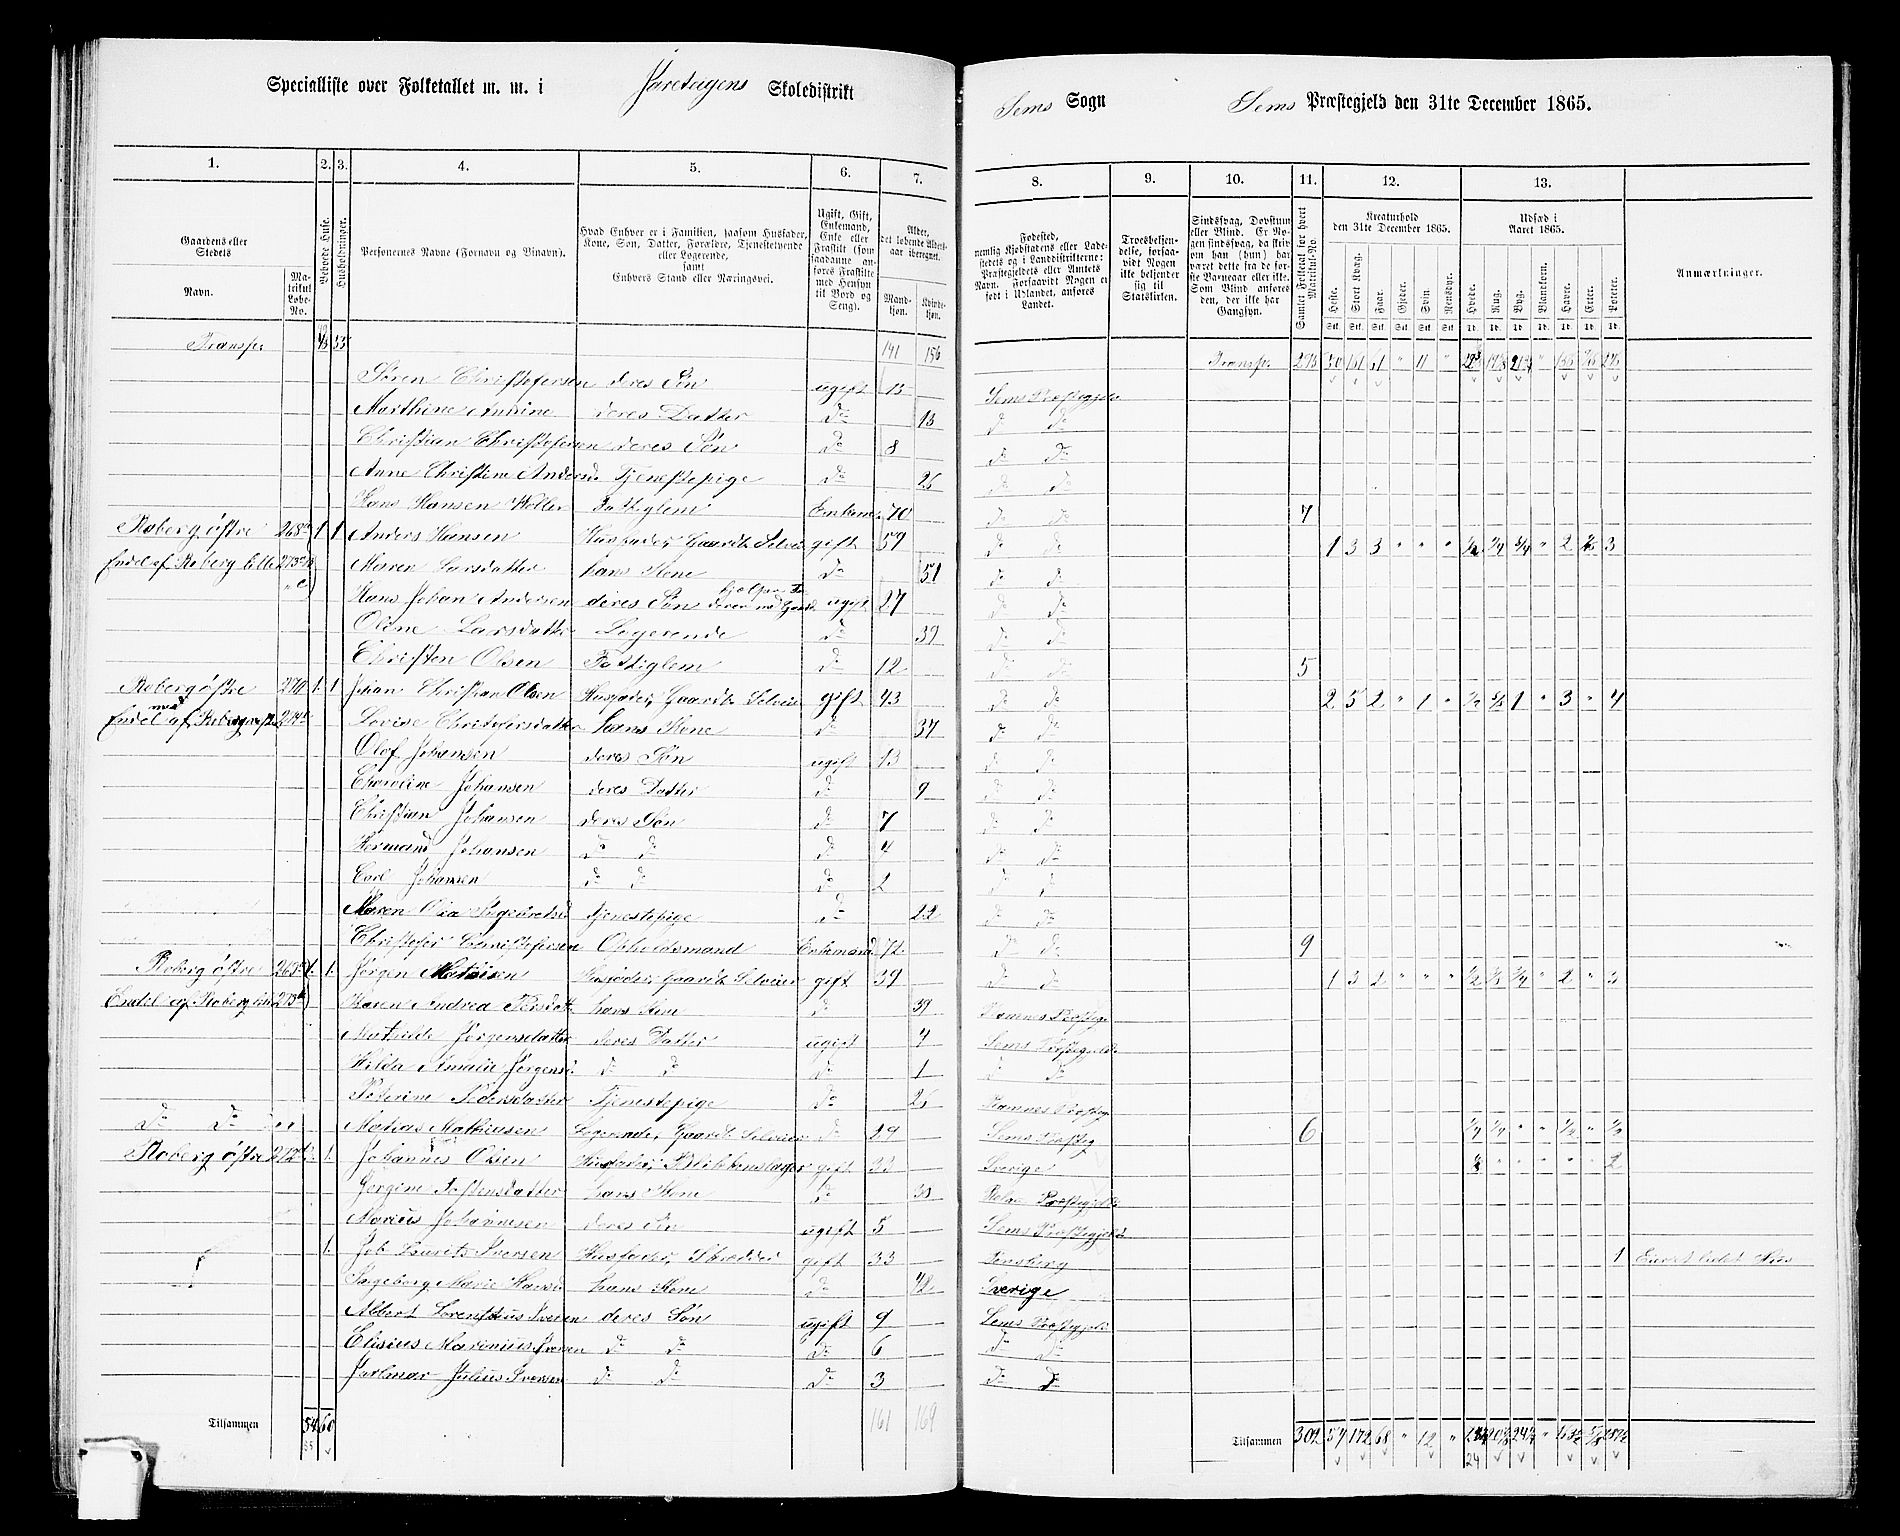 Specialliste over Folketallet m. m. i Jareteigens Skoledistrikt Sems Sogn Sems Præstegjeld den 31te December 1865.
1. 2. 3. 4. 5. 6. 7. 8. 9. 10. 11. 12. 13.
Gaardens eller Stedets Navn. Matrikul Løbe-No. Beboede Huse. Husholdninger. Personernes Navne (Fornavn og Tilnavn). Hvad Enhver er i Familien, saasom Husfader, Kone, Søn, Datter, Forældre, Tjenestetyende eller Logerende, samt Enhvers Stand eller Næringsvei. Ugift, Gift, Enkemand, Enke eller Fraskilt (som saadanne anføres Fraskilte med Hensyn til Bord og Seng). Alder, det løbende Alders-aar iberegnet. Mandkjøn. Kvindekjøn.
Fødested, nemlig Kjøbstadens eller Ladestedets og i Landdistrikterne: Præstegjeldets eller Amtets Navn. Forsaavidt Nogen er født i Udlandet, anføres Landet. Troesbekjendelse, forsaavidt Nogen ikke bekjender sig til Statskirken. Sindssvag, Døvstum eller Blind. Er Nogen sindssvag, da skrives om han (hun) har været dette fra de første Barneaar eller ikke. Som Blind anføres den, der ikke har Gangsyn. Samlet Folketal for hvert Matrikul-No. Kreaturhold den 31te December 1865. Heste. Stort Kvæg. Faar. Gjeder. Svin. Rensdyr. Udsæd i Aaret 1865. Hvede. Rug. Byg. Blandkorn. Havre. Erter. Poteter. Anmærkninger.
Transp. 53 141 156 Transp. 275 11
Søren Christofersen deres Søn ugift 15 Sems Præstegjeld
Marthine Annine deres Datter do 15 do do
Christian Christofersen deres Søn do 8 do do
Anne Christine Andersd Tjenestepige do 26 do do
Hans Hansen Weller Fattiglem Enkem. 70 do do 7
Roberg østre 268 1 1 Anders Hansen Husfader, Gaardb. Selveier gift 59 do do 1 3 3 " " " 1/2 1/4 3/4 " 2 3
Endel af Roberg lille 273 Maren Larsdatter hans Kone do 51 do do
Hans Johan Andersen deres Søn hjelper Faderen med Gaardb. ugift 27 do do
Oline Larsdatter Logerende do 39 do do
Christen Olsen Fattiglem do 12 do do 5
Roberg østre 270 1 1 Johan Christian Olsen Husfader, Gaardb. Selveier gift 43 do do 2 5 2 " 1 " 1/2 1 " 3 " 4
med Endel af Roberg 274 Lovise Christofersdatter hans Kone do 37 do do
Olof Johansen deres Søn ugift 13 do do
Charoline Johansen deres Datter do 9 do do
Christian Johansen deres Søn do 7 do do
Hermand Johansen do do do 4 do do
Carl Johansen do do do 2 do do
Maren Tjenestepige do 22 do do
Christofer Christofersen Opholdsmand Enkemand 72 do do 9
Roberg østre 1 1 Jørgen Husfader, Gaardb. Selveier gift 39 do do 1 3 2 " " " 1/2 3/4 " 2 " 3
Endel af Roberg Karen Andrea hans Kone do 39 Ramnes Præsteg.
Mathilde Jørgensdatter deres Datter ugift 4 Sems Præstegjeld
Hilda Amalie Jørgensd do do do 1 do do
Peterine Pedersdatter Tjenestepige do 25 Ramnes Præsteg
do do Matias Mathiesen Logerende, Gaardb. Selveier do 29 Sems Præsteg 6 1/4 1/4 " " 1/2 " 1/2
Roberg østre 272 1 Johannes Olsen Husfader, Blikkenslager gift 33 Sverige " " " " " 2
Jørgine Tostensdatter hans Kone do 30 Præstegjeld
Marius Johannesen deres Søn ugift 5 Sems Præstegjeld
1 Job Lauritz Iversen Husfader, Skrædder gift 33 Tønsberg 1 Eiet lidet Huus
Ingeborg Marie Hansd hans Kone do 42 Sverige
Albert Lorentsius Iversen deres Søn ugift 9 Sems Præstegjeld
Elisius Marinius Iversen do do do 6 do do
Hjalmar Julius Iversen do do do 3 do do
Tilsammen 54 60 161 169 Tilsammen 302 57 172 68 " 12 "
24